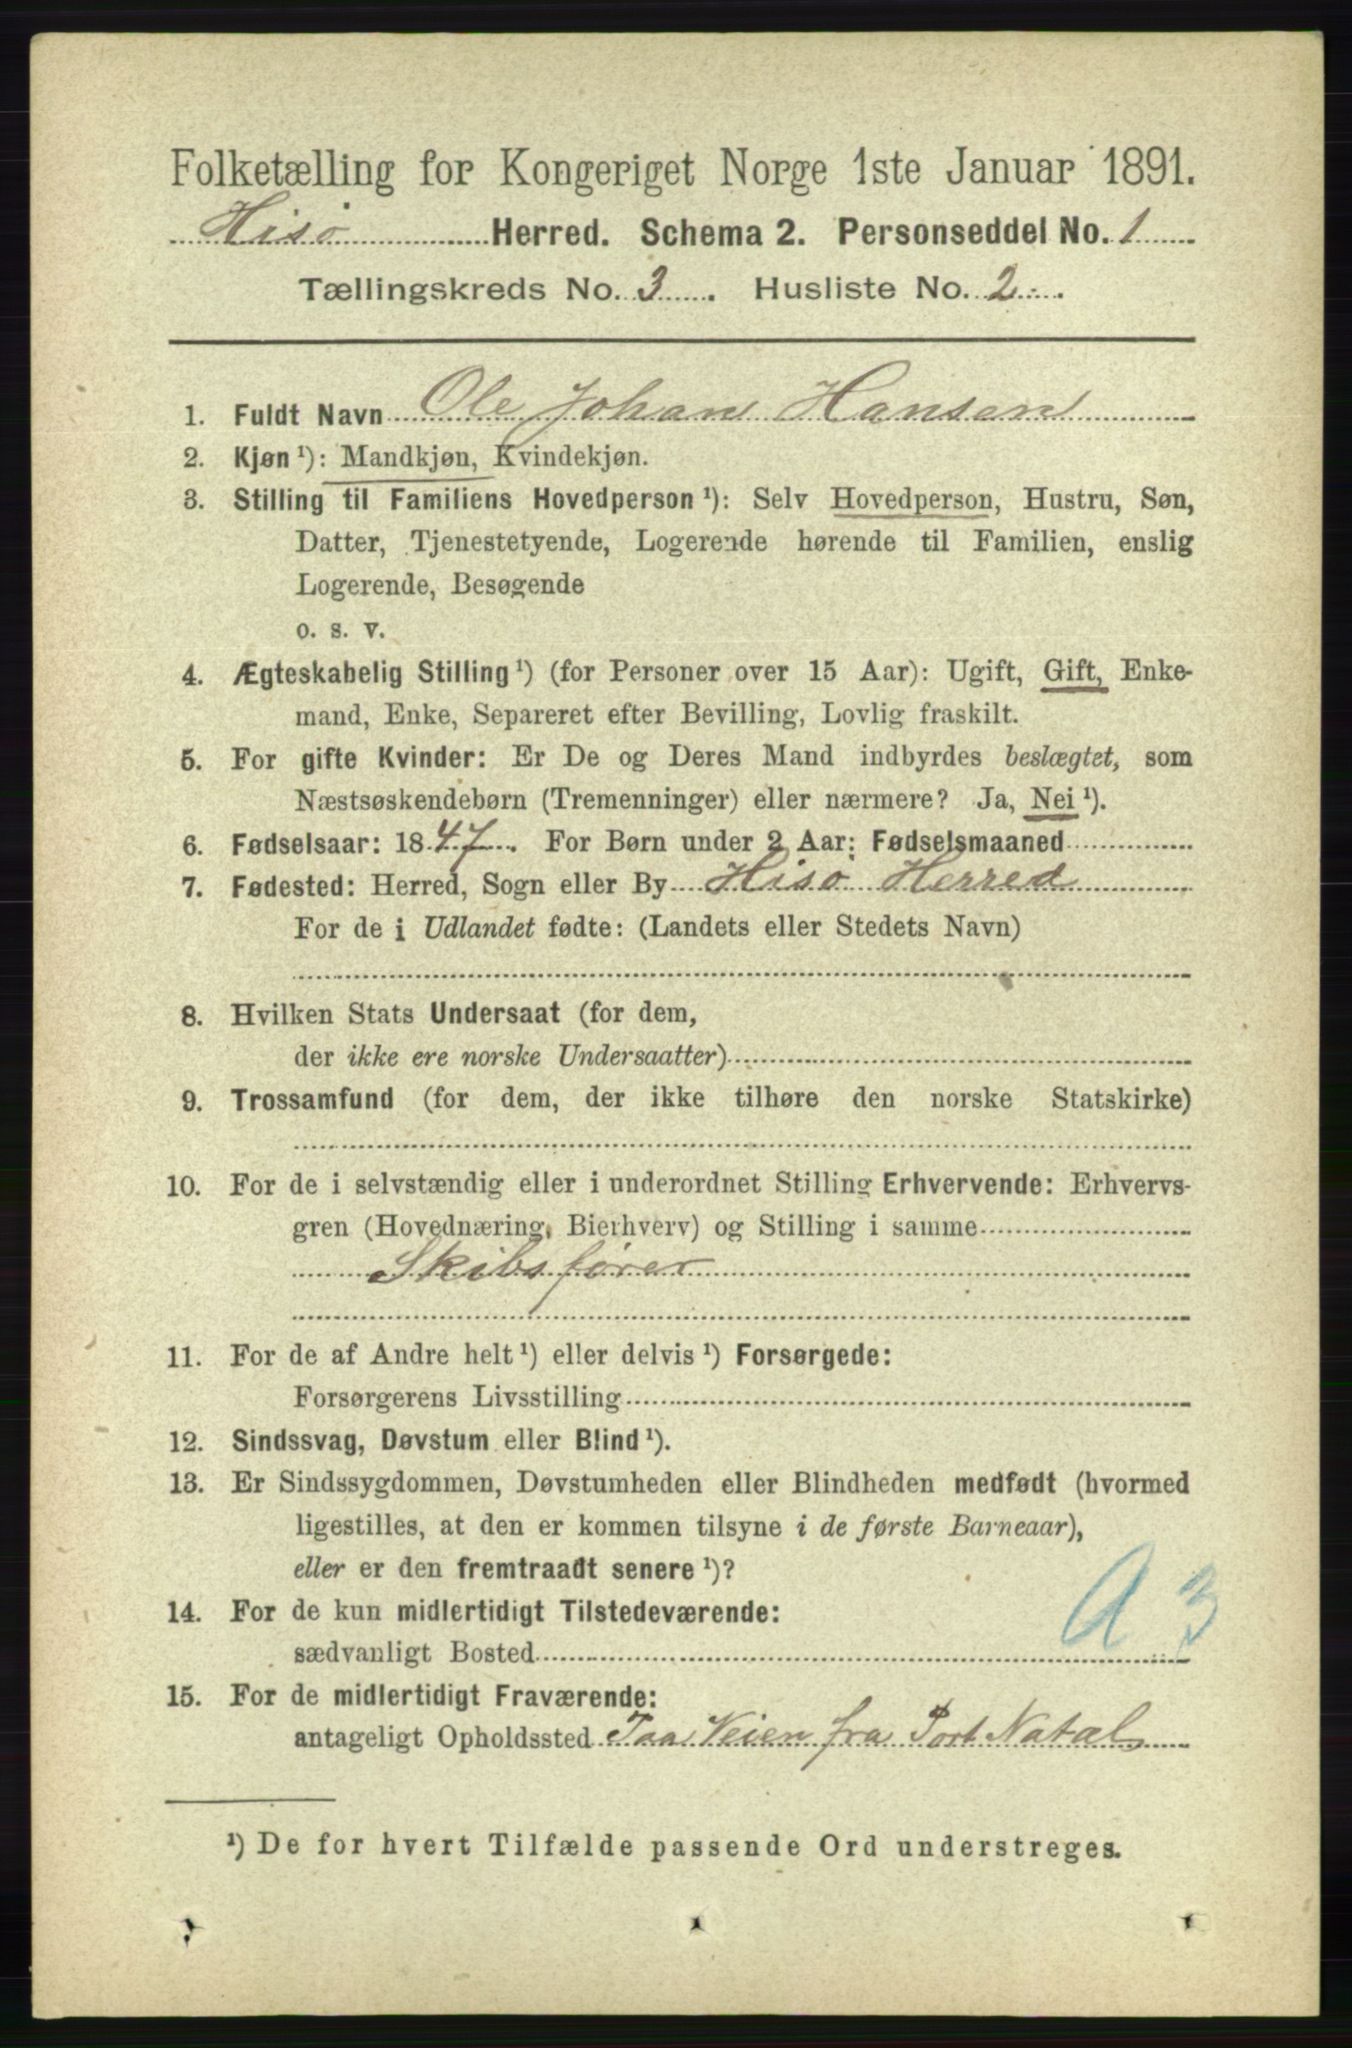 Folketælling for Kongeriget Norge 1ste Januar 1891.
Hisø Herred. Schema 2. Personseddel No. 1
Tællingskreds No. 3. Husliste No. 2.
1. Fuldt Navn Ole Johan Hansen
2. Kjøn ¹): Mandkjøn, Kvindekjøn.
3. Stilling til Familiens Hovedperson ¹): Selv Hovedperson, Hustru, Søn,
Datter, Tjenestetyende, Logerende hørende til Familien, enslig
Logerende, Besøgende
o. s. v.
4. Ægteskabelig Stilling ¹) (for Personer over 15 Aar): Ugift, Gift, Enke-
mand, Enke, Separeret efter Bevilling, Lovlig fraskilt.
5. For gifte Kvinder: Er De og Deres Mand indbyrdes beslægtet, som
Næstsøskendebørn (Tremenninger) eller nærmere? Ja, Nei ¹).
6. Fødselsaar: 1847. For Børn under 2 Aar: Fødselsmaaned
7. Fødested: Herred, Sogn eller By Hisø Herred
For de i Udlandet fødte: (Landets eller Stedets Navn)
8. Hvilken Stats Undersaat (for dem,
der ikke ere norske Undersaatter)
9. Trossamfund (for dem, der ikke tilhøre den norske Statskirke)
10. For de i selvstændig eller i underordnet Stilling Erhvervende: Erhvervs-
gren (Hovednæring, Bierhverv) og Stilling i samme
Skibsfører
11. For de af Andre helt ¹) eller delvis ¹) Forsørgede:
Forsørgerens Livsstilling
12. Sindssvag, Døvstum eller Blind ¹).
13. Er Sindssygdommen, Døvstumheden eller Blindheden medfødt (hvormed
ligestilles, at den er kommen tilsyne i de første Barneaar),
eller er den fremtraadt senere ¹)?
A 3
14. For de kun midlertidigt Tilstedeværende:
sædvanligt Bosted
15. For de midlertidigt Fraværende:
antageligt Opholdssted Paa Veien fra Port Natal
¹) De for hvert Tilfælde passende Ord understreges.